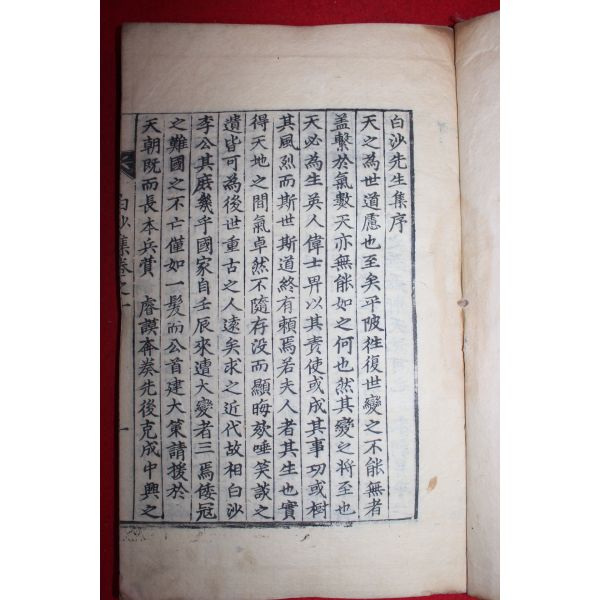 白沙先生集序
天之為世道慮也至矣平陂徃復世變之不能無者
盖繫於氣數天亦無能如之何也然其變之將至也
天必為生英人偉士畀以其責使或成其事功或樹
其風烈而斯世斯道終有賴焉若夫人者其生也實
得天地之間氣卓然不隨存没而顯晦欬唾笑談之
遺皆可為後世重古之人遠矣求之近代故相白沙
李公其庶幾乎國家自壬辰來遭大變者三焉倭冦
之難國之不亡僅如一髮而公首建大策請援於
天朝旣而長本兵賛 睿謨奔奏先後克成中興之
白沙集卷之 一